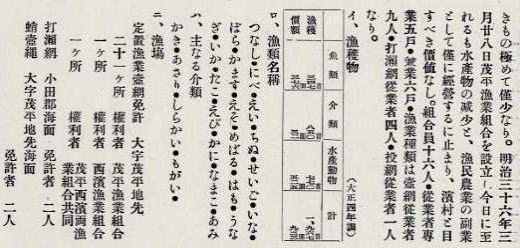 きもの極めて僅少なり。明治三十六年三
月廿八日茂平漁業組合を設立し今日に至
れるも水産物の減少と、漁民農業の副業
として僅に經營するに止まり、濱村と目
すべき價値なし。組合員十六人・從業者專
業五戸・兼業六戸・漁業種類は壷網從業者
九人・打瀬網從業者四人・投網從業者一人
なり。
イ、漁穫物
(大正四年調)
漁穫
價額
魚類
介類
水産動物
計
ロ、漁類名稱
つなし・にべ・えい・ちぬ・せいご・いな・
ぼら・かます・えそ・めばる・はも・うな
ぎ・いか・たこ・えび・かに・なまこ・あみ
ハ、主なる介類
かき・あさり・しらかい・もがい・
ニ、漁場
定置漁業壷網免許 大字茂平地先
二十一ヶ所 權利者 茂平漁業組合
一ヶ所 權利者 西濱漁業組合
一ヶ所 權利者 茂平西濱両漁業組合共同
打瀬網 小田郡海面 免許者 二人
鮹壷繩 大字茂平地先海面
免許者 二人